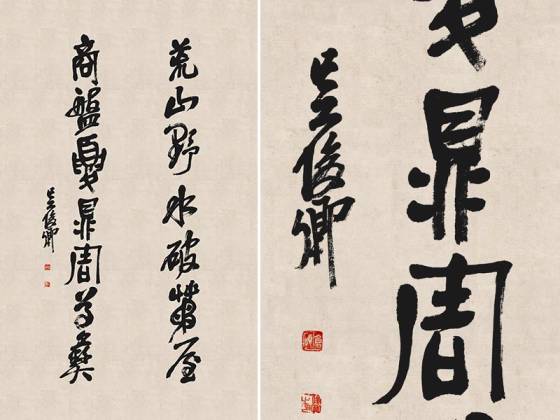 荒山野水破屋
商盤夏鼎周尊彝
吳俊卿
鼎周
吳俊卿